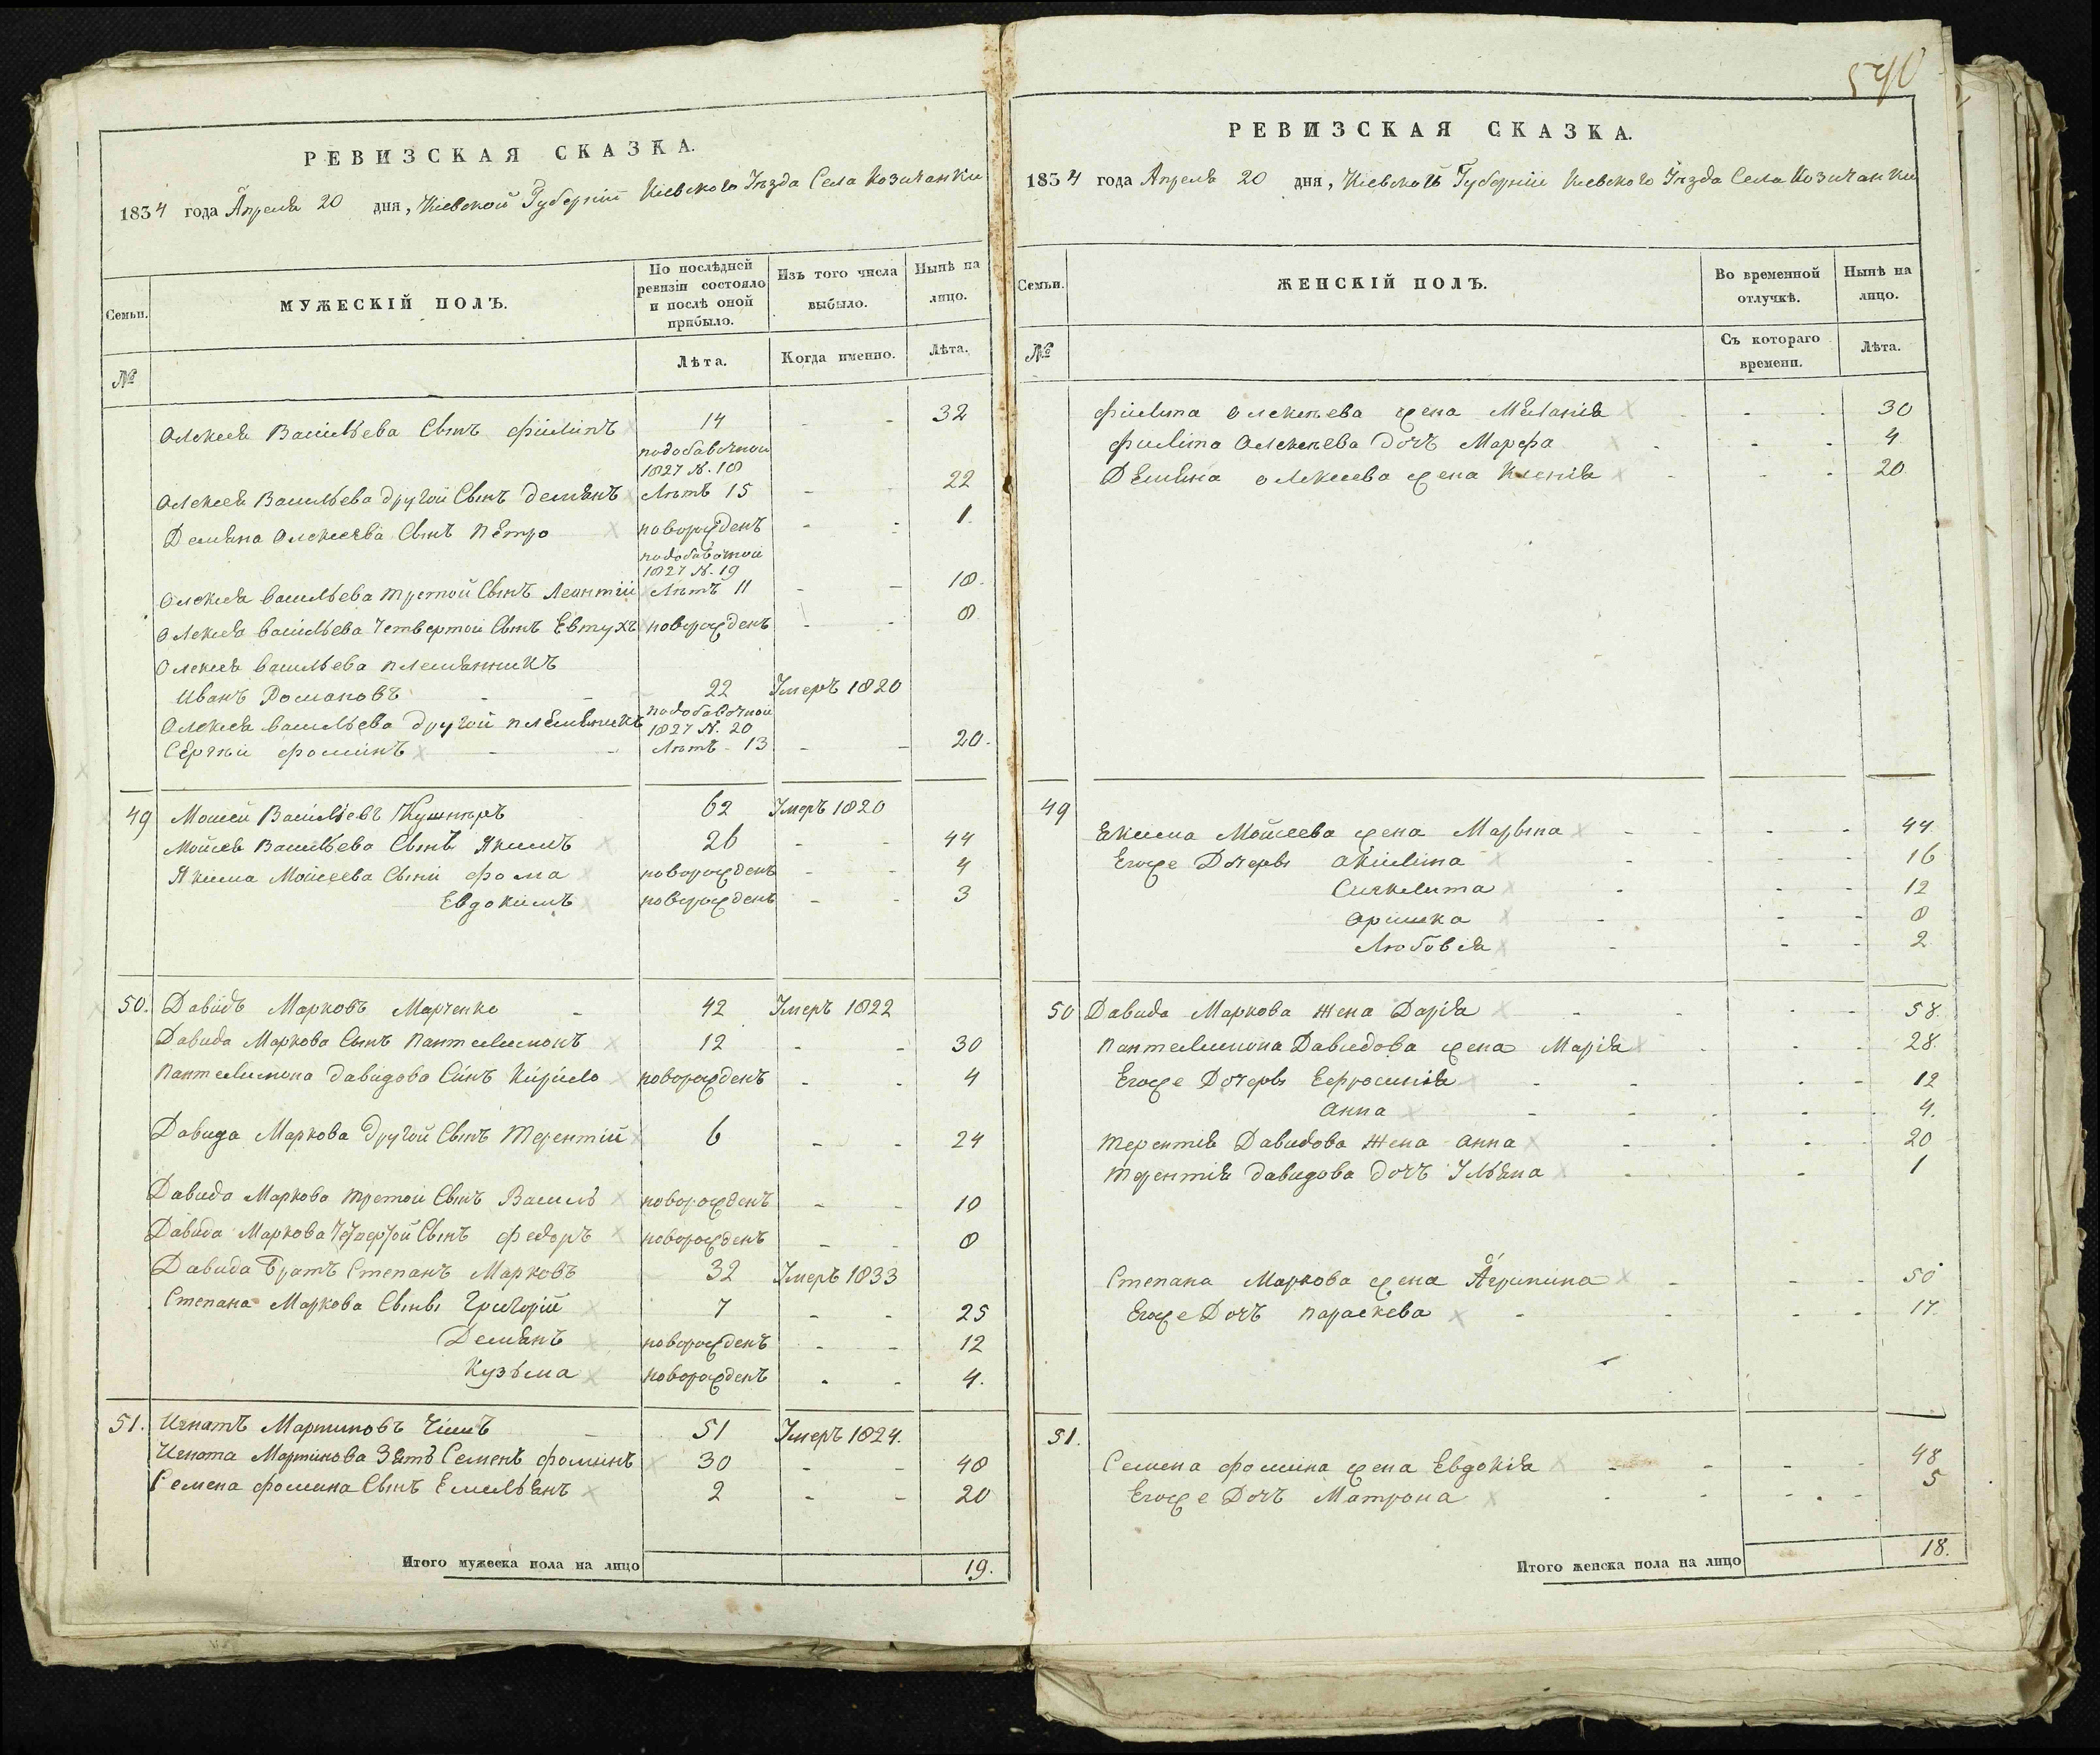 540
РЕВИЗСКАЯ СКАЗКА.
1834 года Апреля 20 дня, Киевской Губернии Киевского Уезда Села Козичанки
Семьи.
МУЖЕСКІЙ ПОЛЪ.
По послѣдней ревизіи состояло и послѣ оной прибыло.
Изъ того числа выбыло.
Нынѣ на лицо.
№
Лѣта.
Когда именно.
Лѣта.
Олексея Васильева Сынъ Филипъ 14 - - 32
подобавочной
1827 N. 18
Олексея Васильева другой Сынъ Демянъ Лѣтъ 15 - - 22
Демяна Олексеева Сынъ Петро новорожденъ - - 1.
подобавочной
1827 N. 19
Олексея Васильева третой Сынъ Леонтий Лѣтъ 11 - - 18.
Олексея Васильева Четвертой Сынъ Евтухъ новорожденъ - - 8
Олексея Васильева племянникъ
Иванъ Романовъ - - 22 Умеръ 1820
подобавочной
Олексея Васильева другой племянникъ 1827 N. 20
Сергѣй Фоминъ - - Лѣтъ 13 - - 20.
49 Моисей Васильевъ Кушниръ 62 Умеръ 1820
Мойсея Васильева Сынъ Якимъ 26 - - 44
Якима Мойсеева Сыни Фома новорожденъ - - 4
Евдокимъ новорожденъ - - 3
50. Давидъ Марковъ Марченко - 42 Умеръ 1822
Давида Маркова Сынъ Пантелимонъ 12 - - 30
Пантелимона Давидова Синъ Кирило новорожденъ - - 4
Давида Маркова другой Сынъ Терентий 6 - - 24
Давида Маркова третой Сынъ Василь новорожденъ - - 10
Давида Маркова Четвертой Сынъ Федоръ новорожденъ - - 8
Давида Братъ Степанъ Марковъ 32 Умеръ 1833
Степана Маркова Сынвı Григорій 7 - - 25
Демянъ новорожденъ - - 12
Кузьма новорожденъ - - 4.
51. Игнатъ Мартиновъ - 51 Умеръ 1824.
Игната Мартинова Зять Семенъ Фоминъ 30 - - 48
Семена Фомина Сынъ Емильянъ 2 - - 20
Итого мужеска пола на лицо 19.
РЕВИЗСКАЯ СКАЗКА.
1834 года Апреля 20 дня, Киевской Губернии Киевского Уезда Села Козичанки
Семьи.
ЖЕНСКІЙ ПОЛЪ.
Во временной отлучкѣ.
Нынѣ на лицо.
№
Съ котораго времени.
Лѣта.
Филипа Олексѣева жена Меланія - - - 30
Филипа Олексѣева дочъ Марфа - - - 4
Демяна Олексеева жена Ксенія - - - 20
49
Якима Мойсеева жена Марына - - - - 44.
Егоже Дочеры Акилина - - - 16
- - - 12
Оришка - - - 8
Любовія - - - 2
50 Давида Маркова Жена Дарія - - - - 58.
Пантелимона Давидова жена Марія - - - 28.
Егоже Дочеры Ефросинія - - - - - 12
Анна - - - - - 4.
Терентія Давидова Жена Анна - - - 20
Терентія Давидова дочъ Ульяна - - 1
Степана Маркова жена Агрипина - - - 50
Егоже Дочъ Параскева - - - - 17.
51.
Семена Фомина жена Евдокія - - - - 48
Егоже Дочъ Матрона - - - - - 5
Итого женска пола на лицо 18.